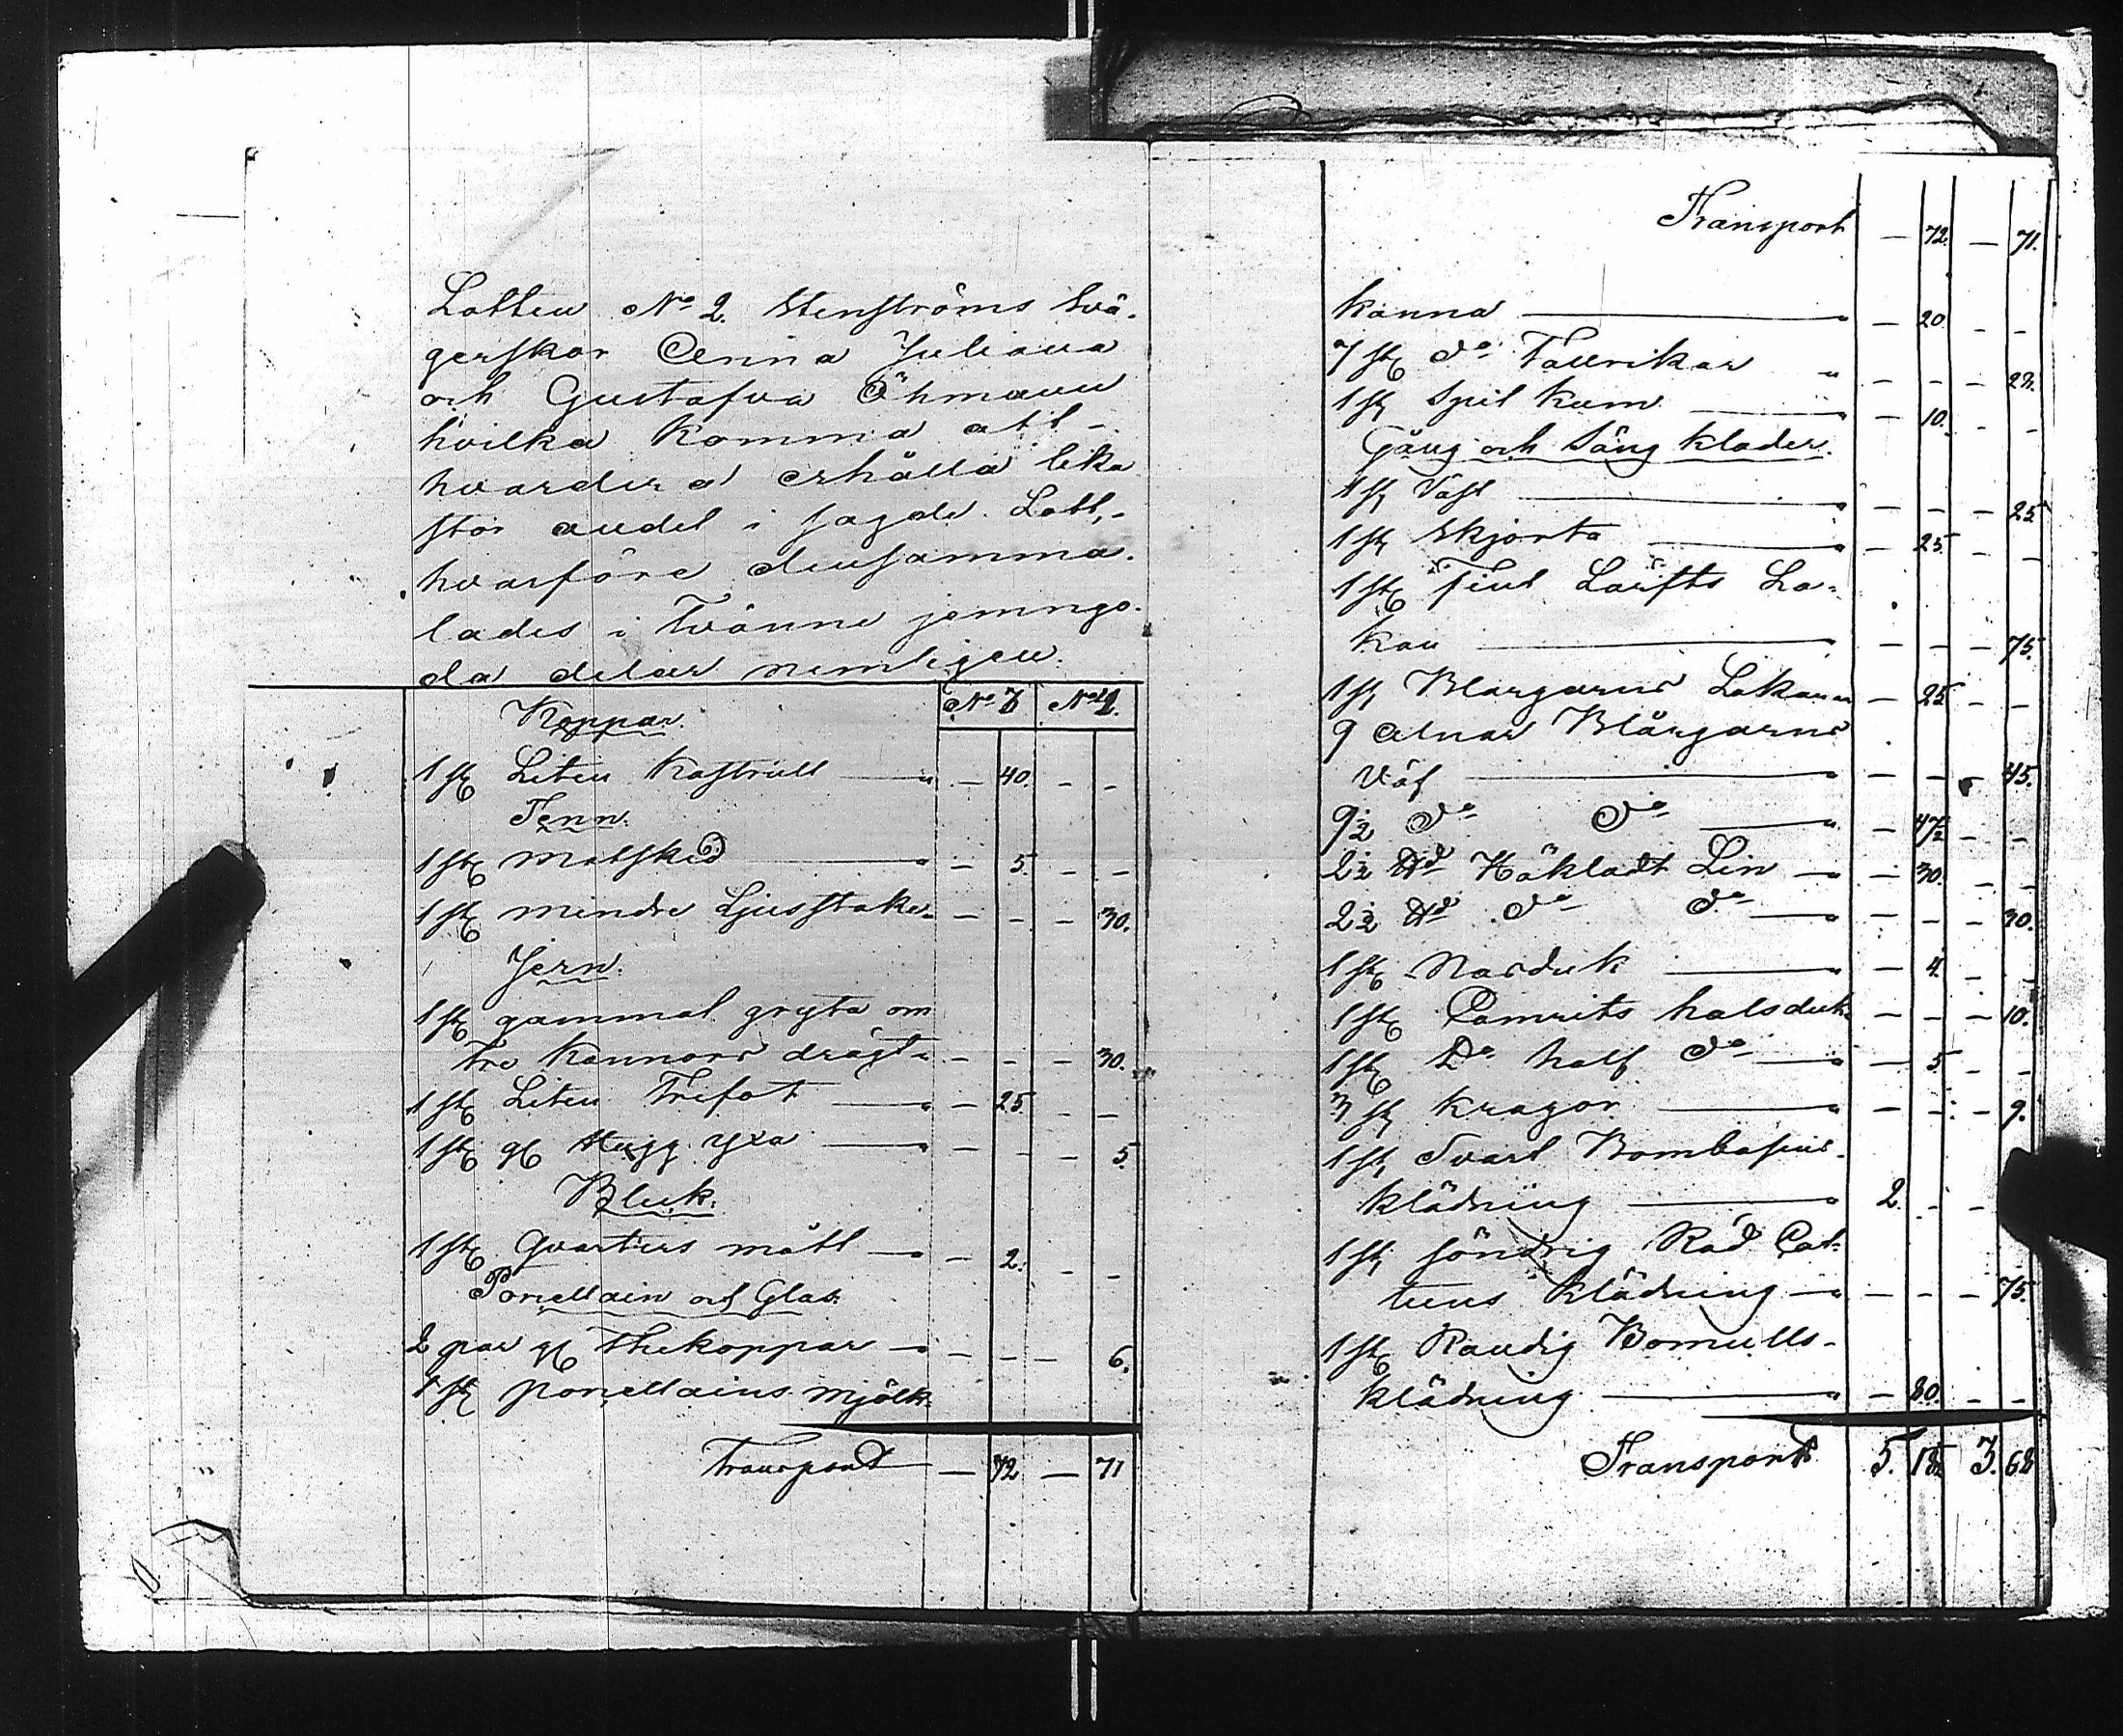 Lotten No 2. Stenströms Svä-
gerskor Anna Juliana
och Gustafva Öhmann
hvilka komma att -
hvardera erhålla lika
stor andel i sagde Lott,-
hvarföre densamma
lades i Tvänne jemngo-
da delar nemligen.
No 1 No 2.
Koppar.
1 st Liten Kastrull — " — 40. — —
Tenn.
1 st Matsked — " — 5. — —
1 st mindre Ljusstake " — — — 30.
Jern.
1 st gammal gryta om
tre Kannors drägt " — — — 30.
1 st Liten Trefot — " — 25. — —
1 st gl Hugg yxa — " — — — 5.
Bleck.
1 st Qvarters mått — " — 2. — —
Porcellain och Glas.
2 par gl Thekoppar — " — — — 6.
1 st Porcellains Mjölk-
Transport — 72 — 71
Transport — 72. — 71.
kanna — " — 20. — —
7 st do Tallrikar " — — — 28.
1 st Spil kum — " — 10. — —
Gång och Säng kläder.
1 st Väst — " — — — 25
1 st Skjorta — " — 25. — —
1 st Fint Lärfts La-
kan — " — — — 75.
1 st Blargarns Lakan " — 25 — —
9 alnar Blårgarns
Väf — " — — — 45.
9 1/2 do do — " — 47 1/2 — —
2 1/2 ℔ Häkladt Lin — " — 30. — —
2 1/2 ℔ do do — " — — — 30.
1 st Nasduk — " — 4. — —
1 st Camrits halsduk " — — — 10.
1 st Do half do — " — 5 — —
3 st Kragor — " — — — 9.
1 st Svart Bombasins-
klädning — " 2. — —
1 st söndrig Röd Cat-
tuns klädning — " — — — 75.
1 st Randig Bomulls-
klädning — " — 80. — —
Transport 5. 18 1/2 3. 68